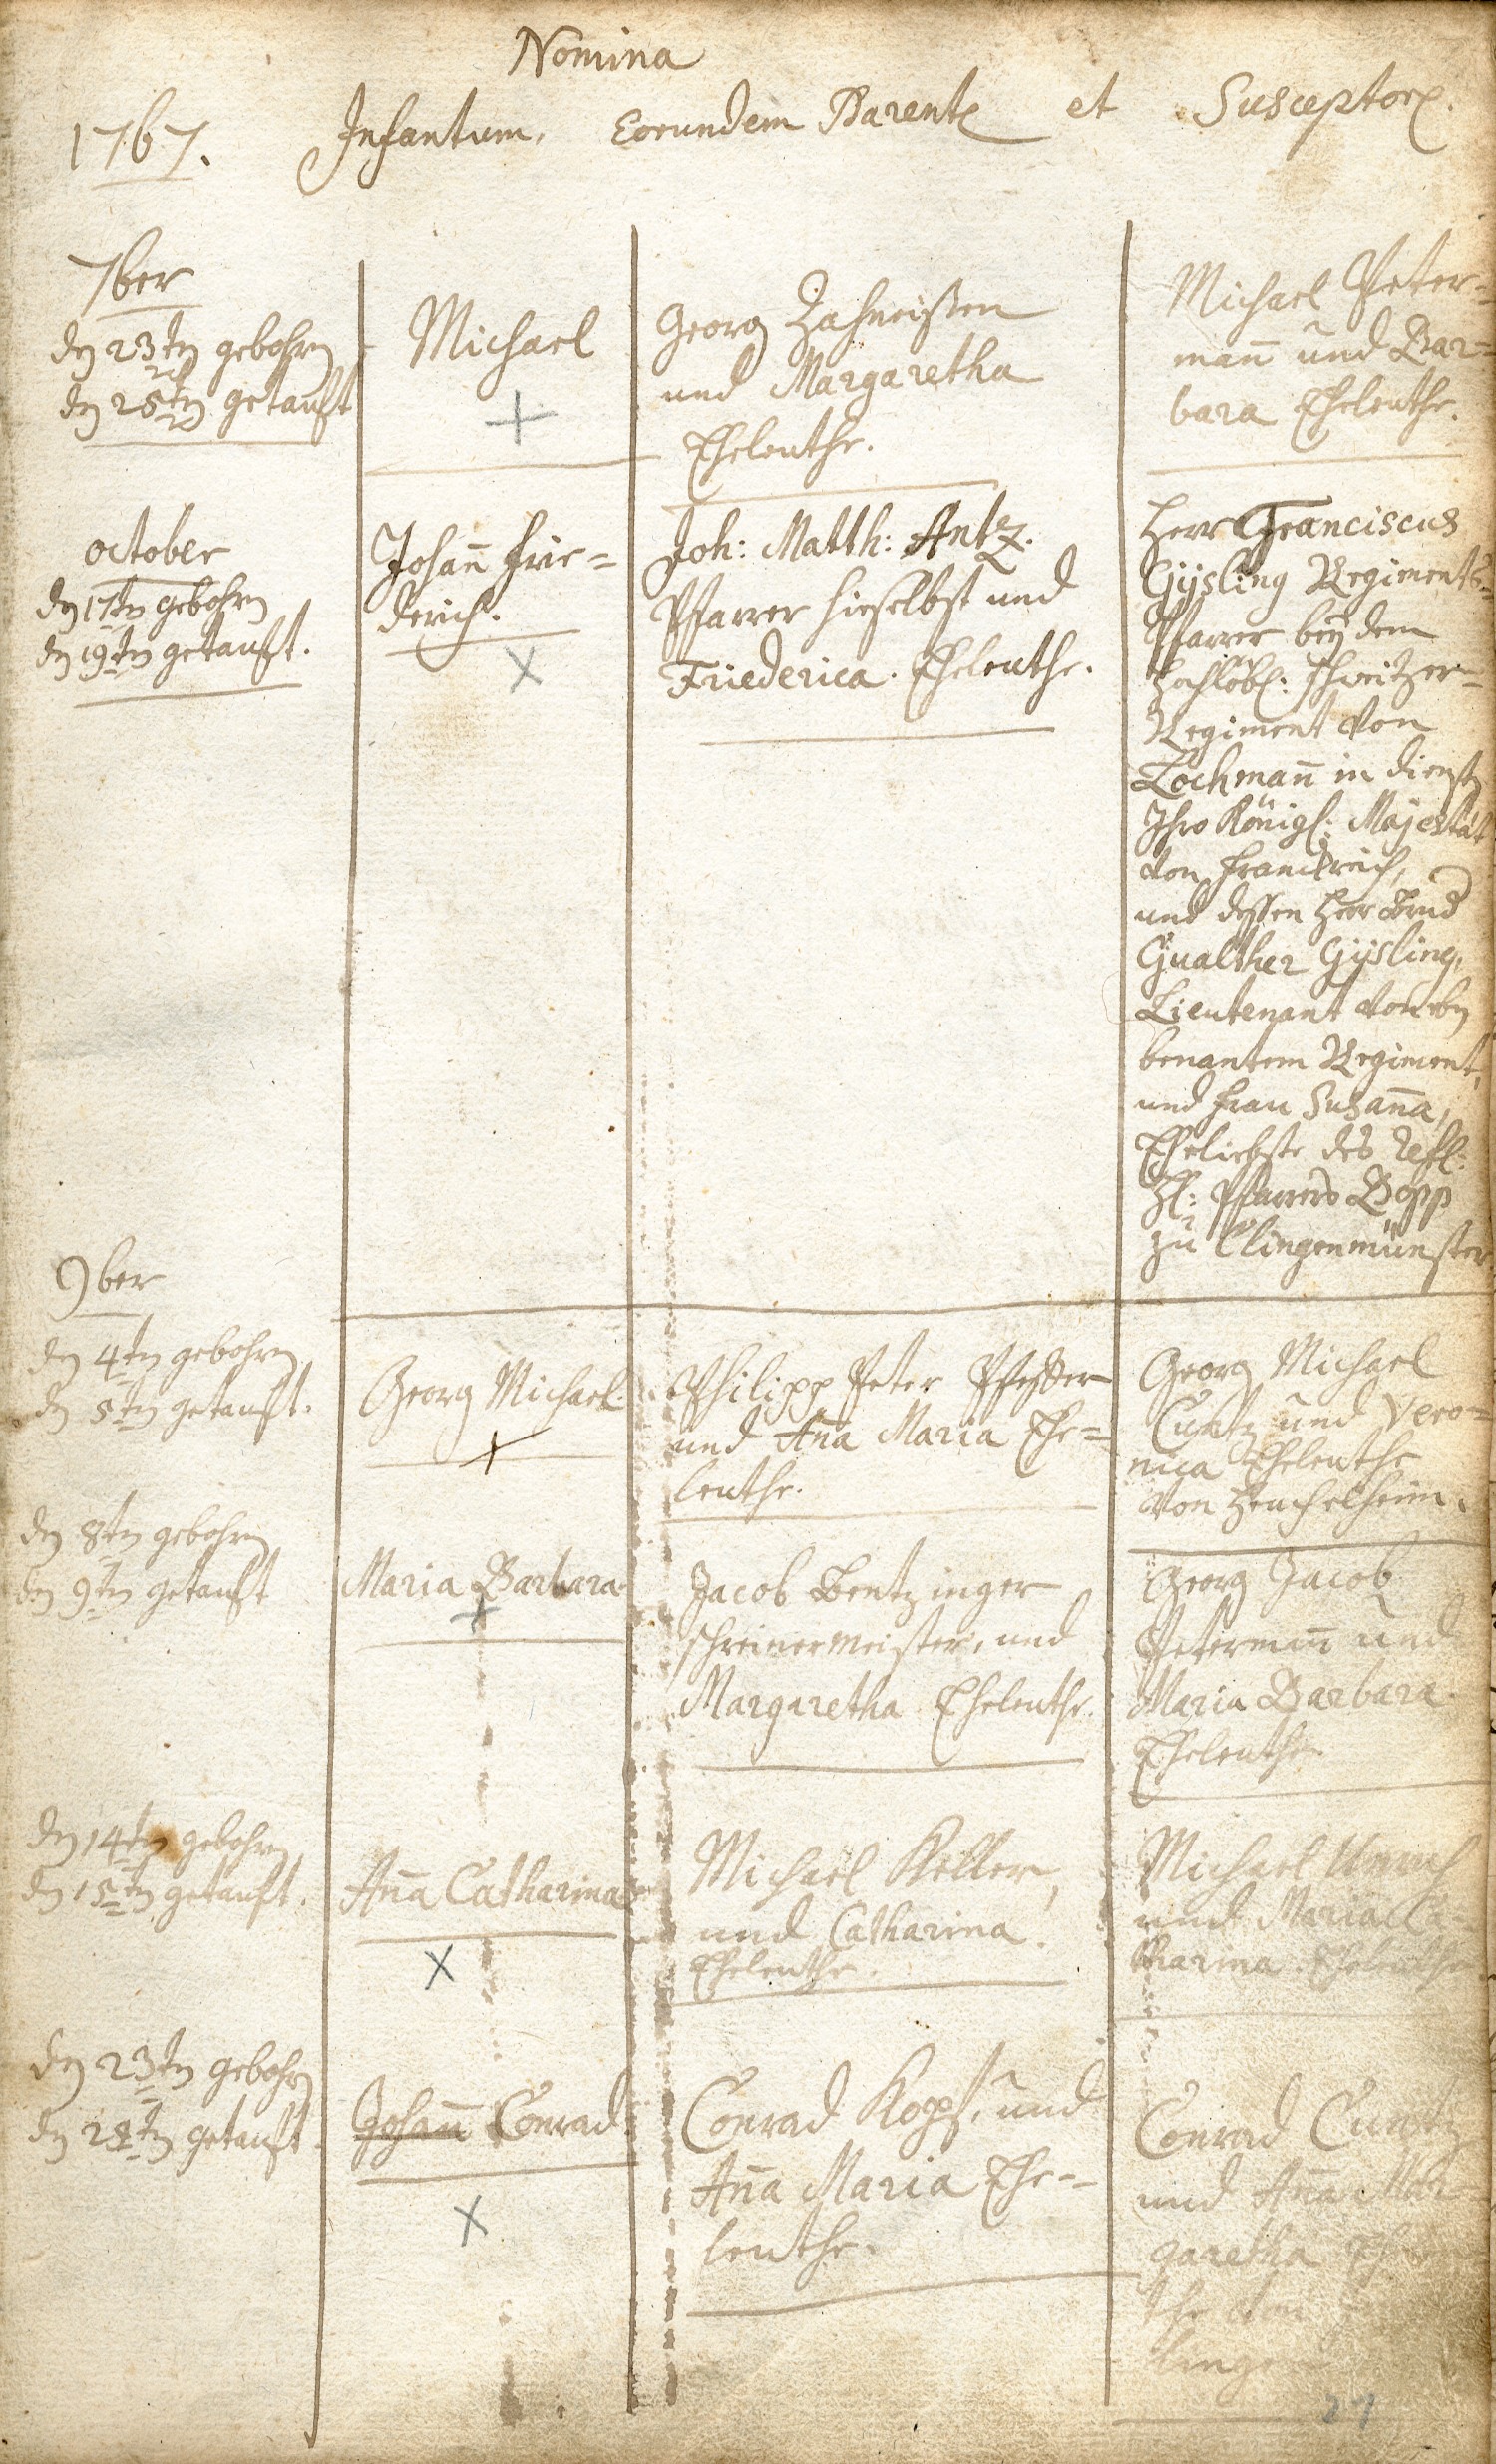 Nomina
1767. Infantum, Eorundem Parent et Susceptor.
7ber
den 23ten gebohren
den 25ten getauft
Michael
Georg Zahneißen
und Margaretha
Eheleuthe.
Michael Peter=
man̄ und Bar=
bara Eheleuthe.
october
den 17ten gebohren
den 19ten getauft.
Johan̄ Frie=
derich.
Joh: Matth: Antz.
Pfarrer hieselbst und
Friederica. Eheleuthe.
Herr Franciscus
Gÿsling Regiments=
Pfarrer beÿ dem
Hochlöbl: Schweitzer=
Regiment von
Lochman̄ in dienst
Ihro Königl: Majestät
von Franckreich,
und dessen Herr Brud
Gualther Gÿsling,
Lieutenant von ob
benantem Regiment,
und Frau Susan̄a,
Eheliebste des Refl:
H: Pfarrers Bopp
zu Clingenmünster
9ber
den 4ten gebohren
den 5ten getauft.
Georg Michael.
Philipp Peter Pfeffer
und An̄a Maria Ehe=
leuthe.
Georg Michael
Cuntz und Vero=
nica Eheleuthe
von Heuchelheim.
den 8ten gebohren
den 9ten getauft
Maria Barbara
Jacob Bentzinger
schreinermeister, und
Margaretha Eheleuthe.
Georg Jacob
Peterman̄ und
Maria Barbara
Eheleuthe
den 14ten gebohren
den 15ten getauft.
An̄a Catharina
Michael Keller,
und Catharina.
Eheleuthe.
Michael
und Maria Ca=
tharina Eheleuthe
den 23ten gebohren
den 25ten getauft.
Johan̄ Conrad
Conrad Kopf, und
An̄a Maria Ehe=
leuthe.
Conrad Cuntz
und An̄a Mar=
garetha
27